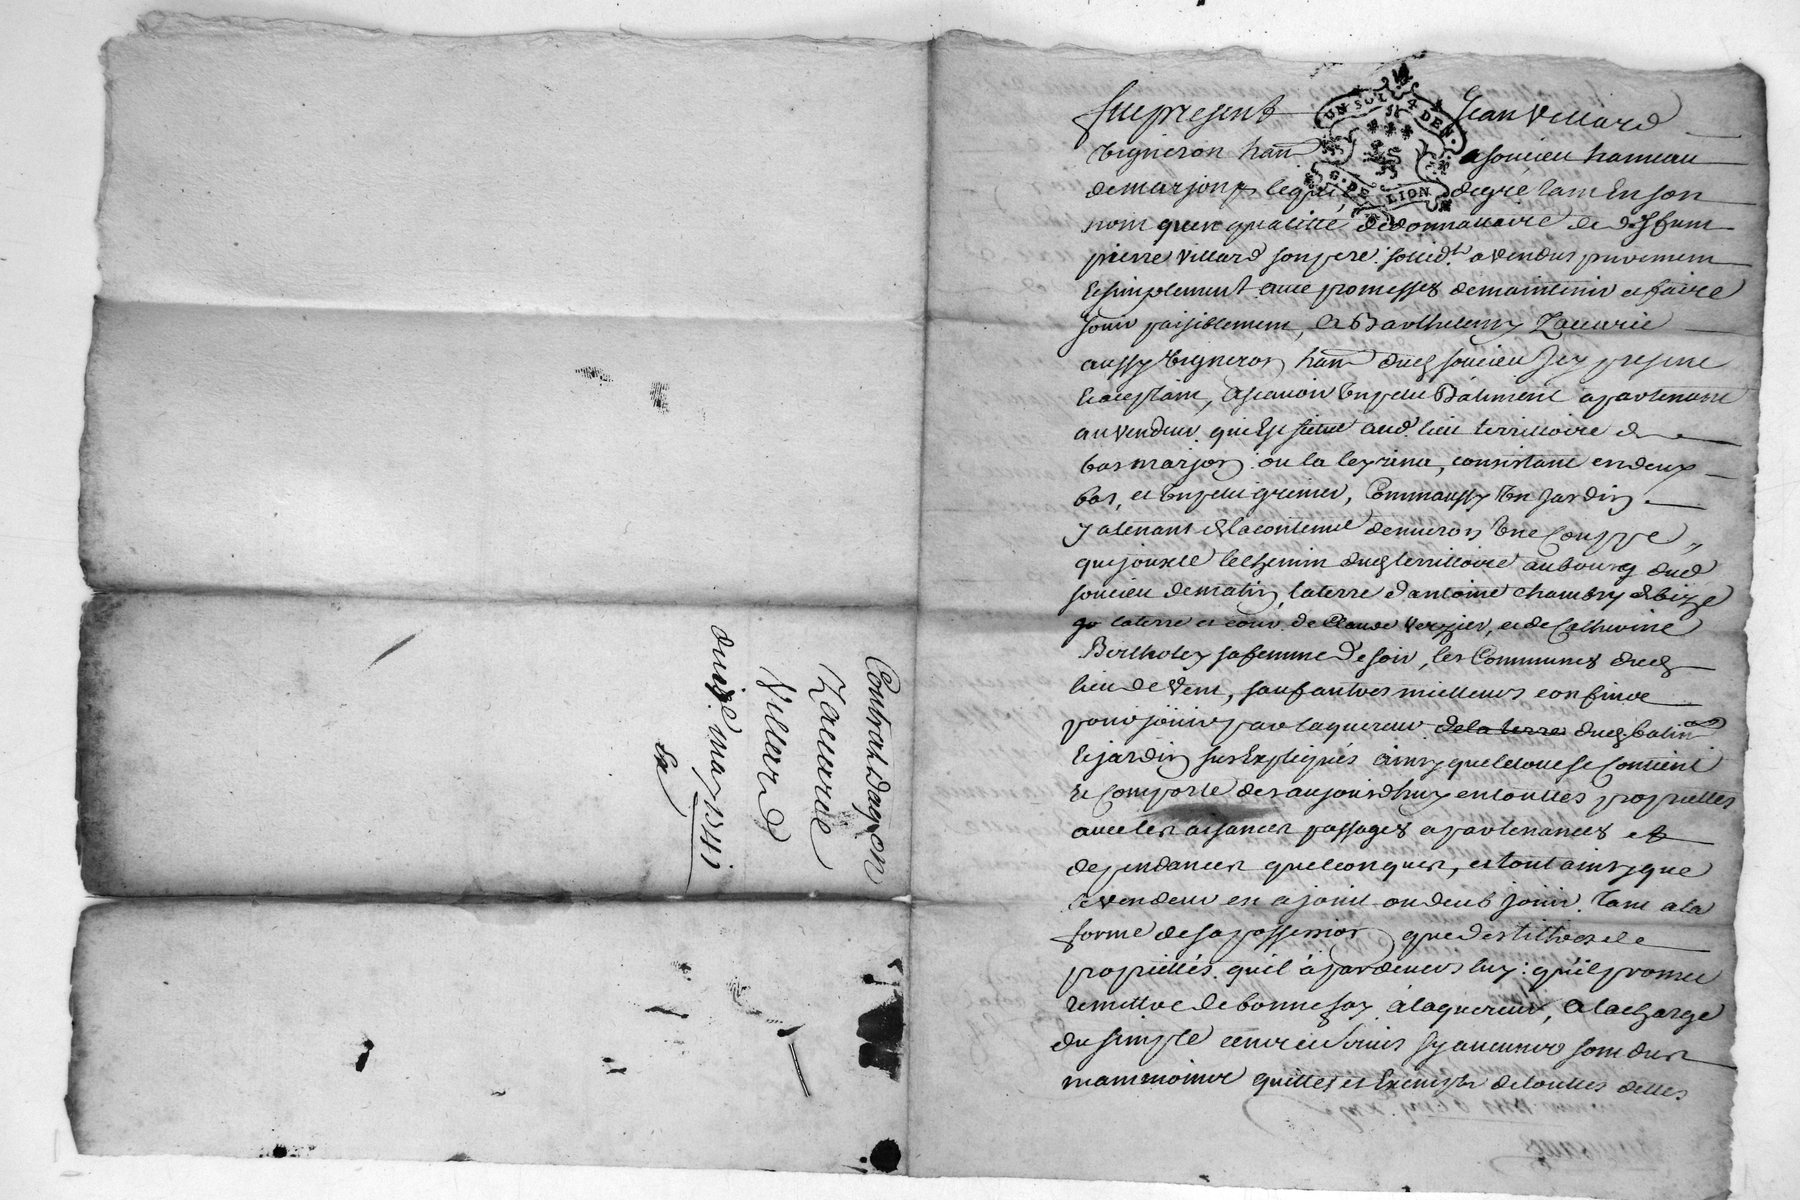 Contrat dacq.on
Zacarie
Villard
du 19.e may 1741
Fut present Jean Villard
UN SOL 4 DEN.
G. DE LION
vigneron han a soucieu hameau
de marjon lequel de gré tant en son
nom qu'en qualitté de donnattaire de deffunt
pierre villard son pere a vendu purement
et simplement avec promesses de maintenir et faire
jouir paisiblement, a Barthelemy Zacarie
aussy vigneron han dud soucieu icy present
et aceptant, a scavoir un petit Batiment apartenant
au vendeur qui est scitué aud. lieu territoire de
bas marjon ou la leyrina, consistant en deux
bas, et un petit grenier, comm'aussy un jardin
y atenant de la contenue d'environ une couppe
que jouxte le chemin dud territoire au bourg dud
soucieu de matin, la terre d'antoine chambry de bize
la terre et cour de Claude Verzier, et de Catherine
Bertholey sa femme de soir, les Communes dud
lieu de vent, sauf autres mieilleurs confins
pour jouir par laquereur de la terre dud. batim
et jardin sus expliqués ainsy que le tout se contient
et comporte des aujourdhuy en touttes proprietés
avec les aisances passages apartenances et
dependances quelconques, et tout ainsy que
le vendeur en a jouit ou deub jouir tant a la
forme de sa possession que des tiltres de
proprietés qu'il a pardevers luy qu'il promet
remettre de bonne foy a laquereur, a la charge
du simple cens et servis sy aucuns sont dus
neanmoins quittes et exempts de touttes dettes